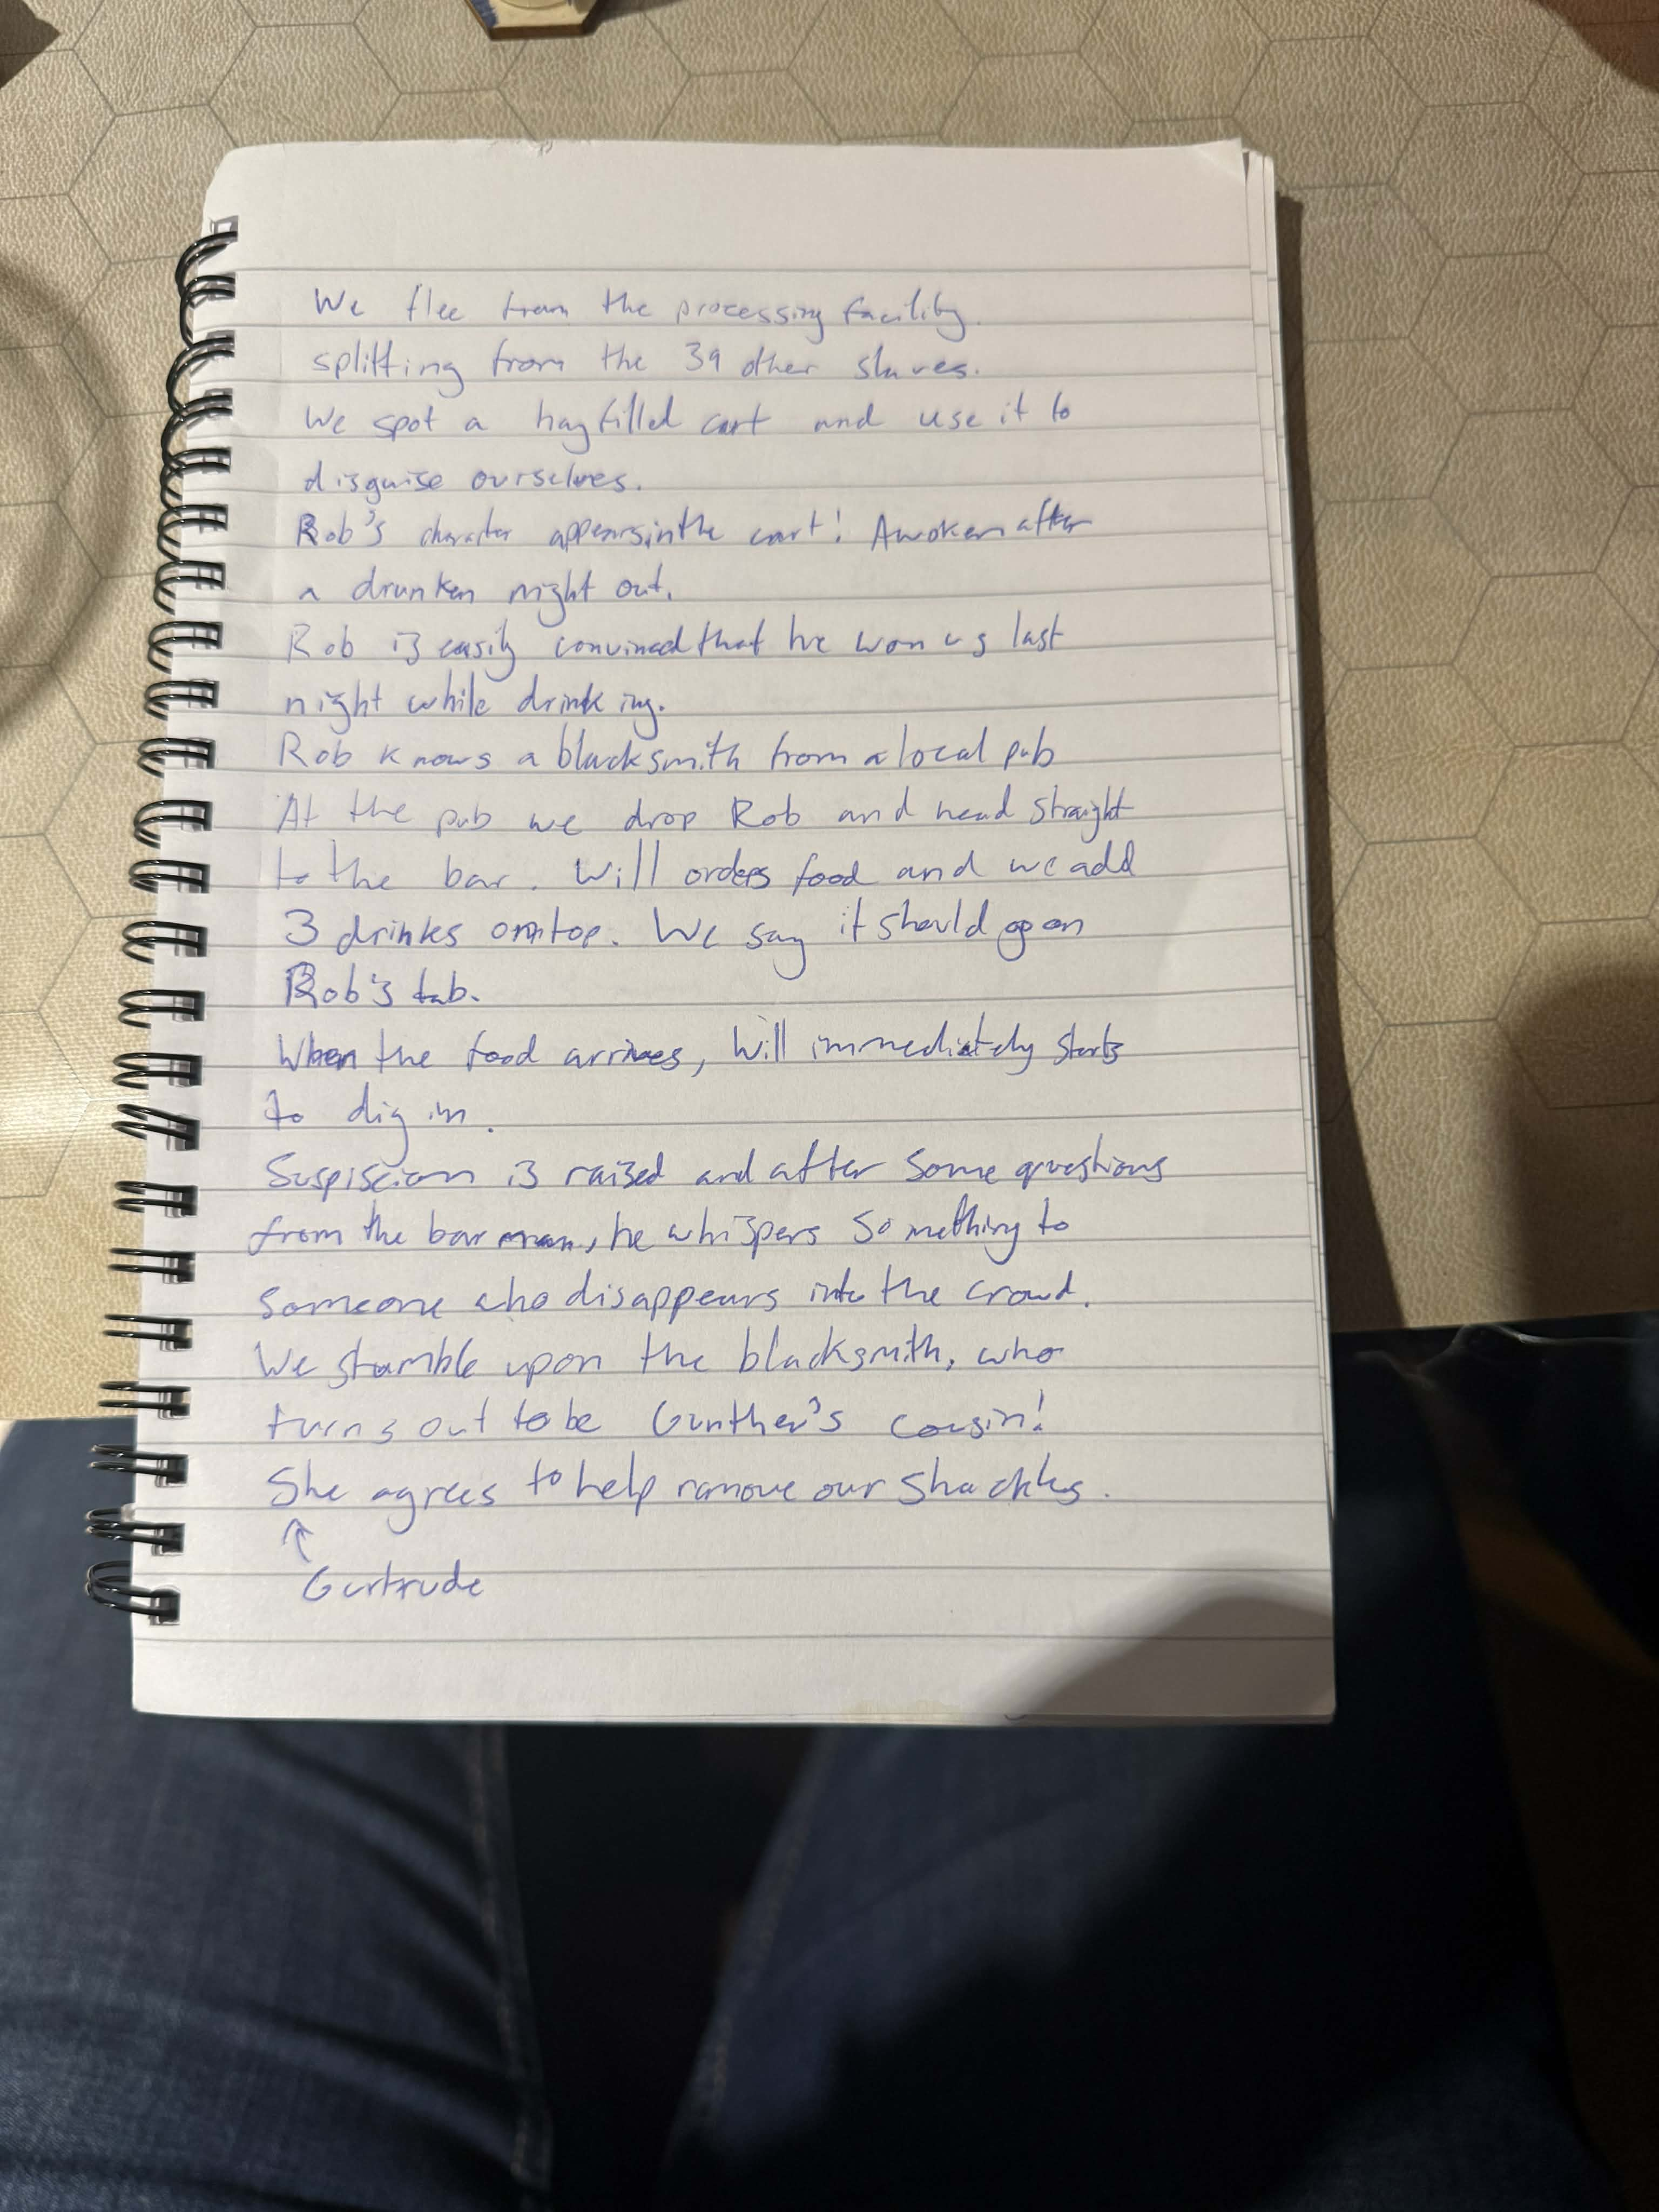 We flee from the processing facility.
splitting from the 39 other slaves.
We spot a hay filled cart and use it to
disguise ourselves.
Rob's character appears in the cart! Awoken after
a drunken night out.
Rob is easily convinced that he won us last
night while drinking.
Rob knows a blacksmith from a local pub
At the pub we drop Rob and head straight
to the bar. Will orders food and we add
3 drinks on top. We say it should go on
Rob's tab.
When the food arrives, Will immediately starts
to dig in.
Suspiscion is raised and after some questions
from the bar man, he whispers something to
someone who disappears into the crowd.
We stumble upon the blacksmith, who
turns out to be Gunther's cousin!
She agrees to help remove our shackles.
↑
Gertrude